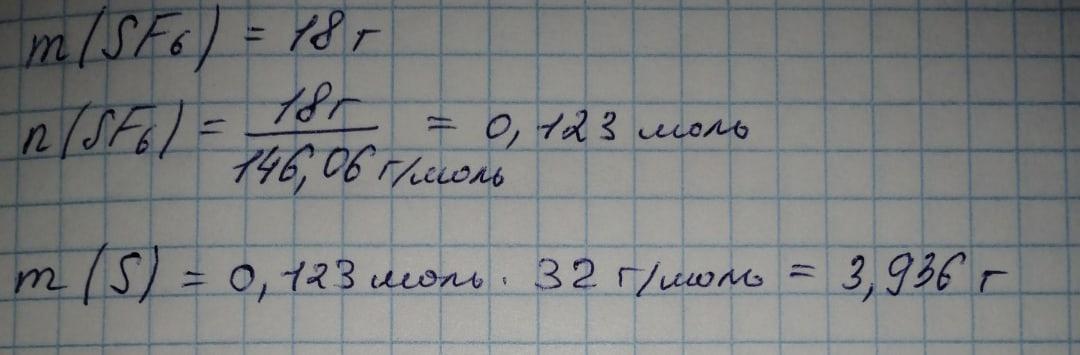 m(SF₆) = 18 г
n(SF₆) = 18 г / 146,06 г/моль = 0,123 моль
m(S) = 0,123 моль · 32 г/моль = 3,936 г